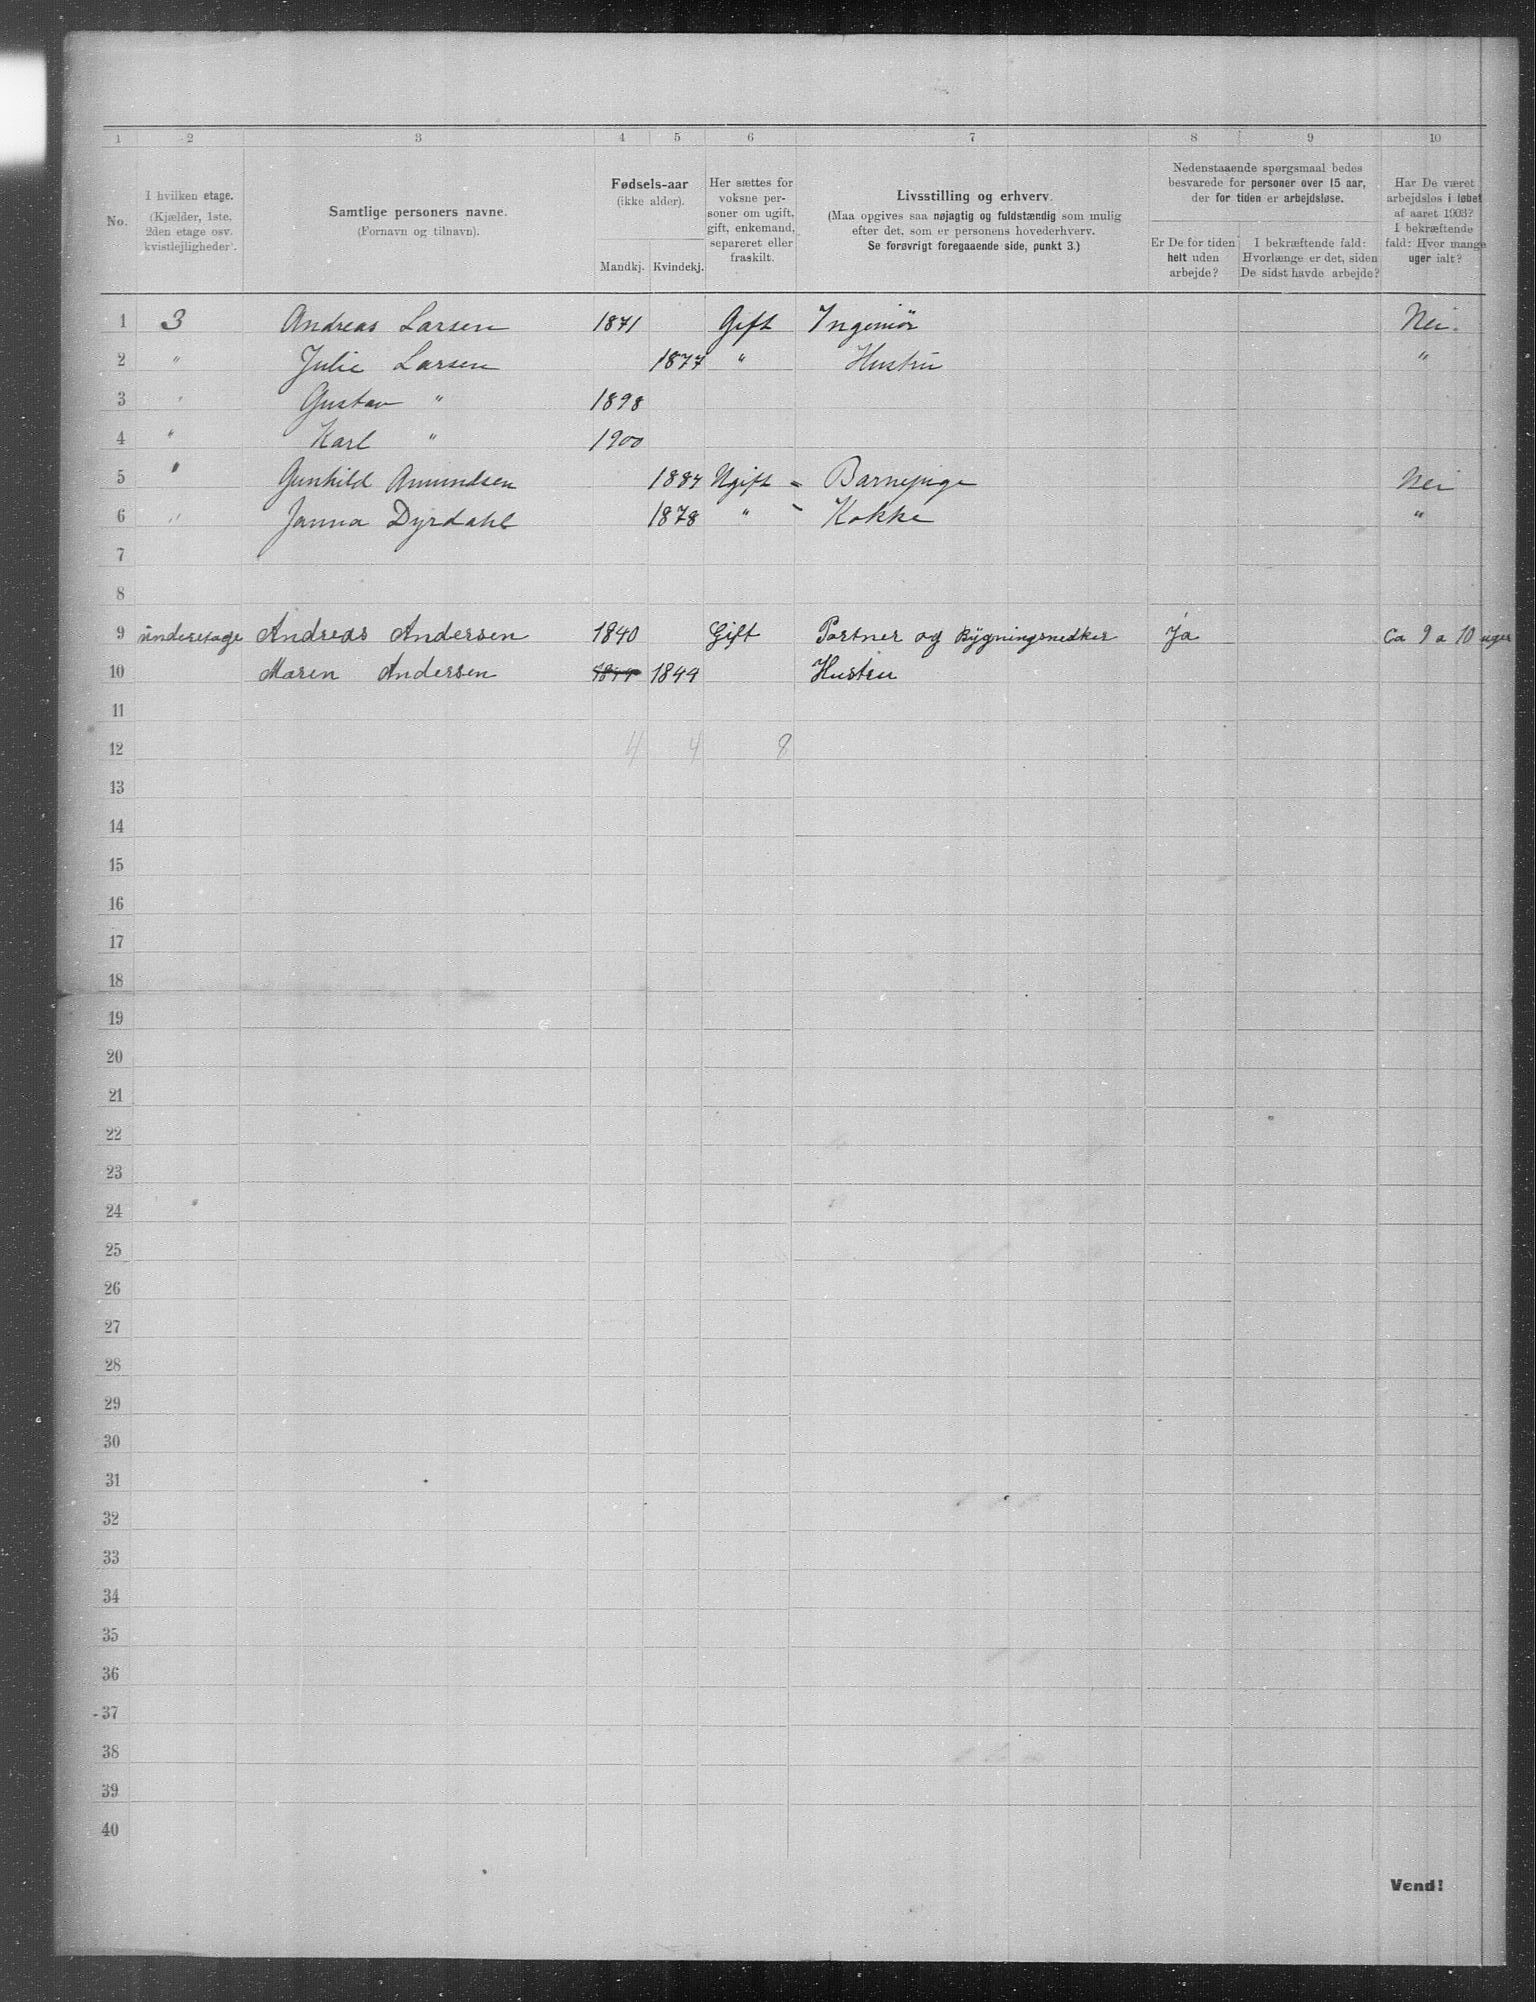 1 2 3 4 5 6 7 8 9 10
No.
I hvilken etage.
(Kjælder, 1ste,
2den etage osv.
kvistlejligheder).
Samtlige personers navne.
(Fornavn og tilnavn).
Fødsels-aar
(ikke alder).
Mandkj. Kvindekj.
Her sættes for
voksne per-
soner om ugift,
gift, enkemand,
separeret eller
fraskilt.
Livsstilling og erhverv.
(Maa opgives saa nøjagtig og fuldstændig som mulig
efter det, som er personens hovederhverv.
Se forøvrigt foregaaende side, punkt 3.)
Nedenstaaende spørgsmaal bedes
besvarede for personer over 15 aar,
der for tiden er arbejdsløse.
Er De for tiden
helt uden
arbejde?
I bekræftende fald:
Hvorlænge er det, siden
De sidst havde arbejde?
Har De været
arbejdsløs i løbet
af aaret 1903?
I bekræftende
fald: Hvor mange
uger ialt?
1 3 Andreas Larsen 1871 Gift Ingeniør Nei.
2 " Julie Larsen 1877 " Hustru "
3 " Gustav " 1898
4 " Karl " 1900
5 " Gunhild Amundsen 1884 Ugift - Barnepige Nei
6 " Janna Dyrdahl 1878 " - Kokke "
7
8
9 underetage Andreas Andersen 1840 Gift Portner og Bygningsnedker Ja Ca 9 a 10 uger
10 Maren Andersen 1844 1844 Hustru
11
12 4 4 8
13
14
15
16
17
18
19
20
21
22
23
24
25
26
27
28
29
30
31
32
33
34
35
36
37
38
39
40
Vend!